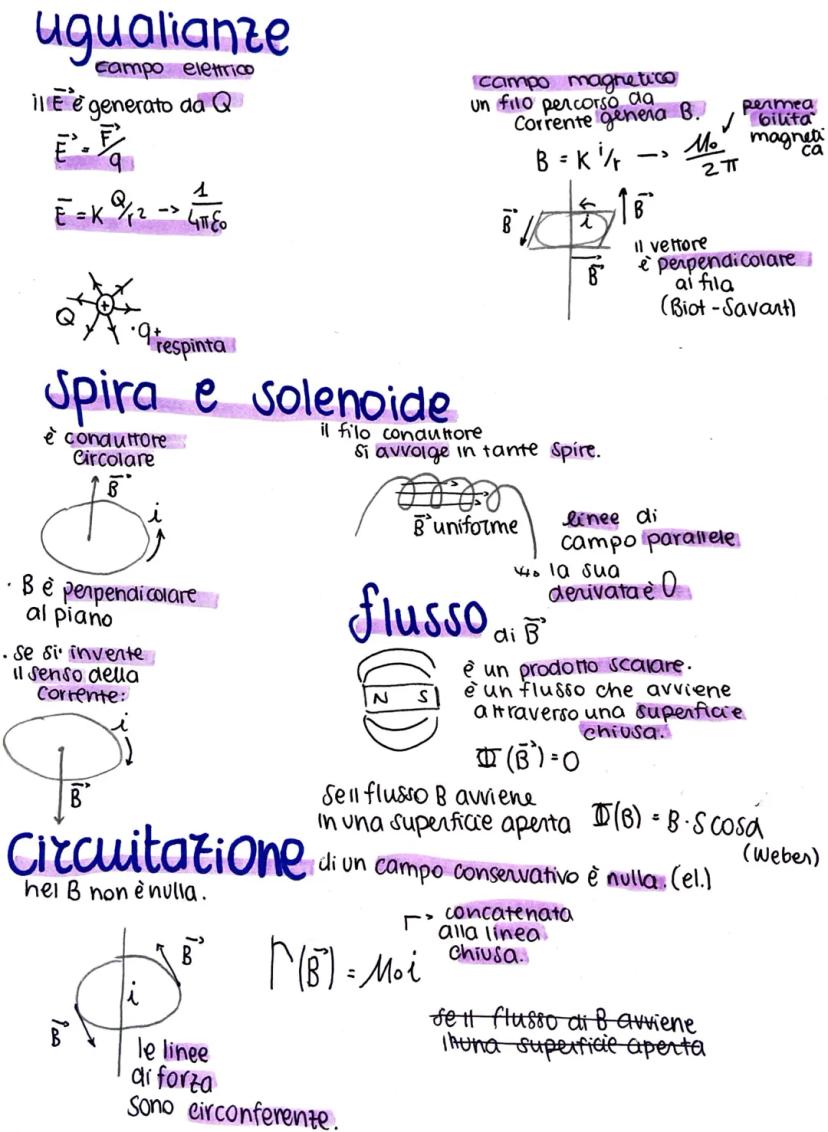 ugualianze
campo elettrico
il E è generato da Q
E = F/q
E = K Q/r² -> 1/4πε₀
Q
+
· q+
respinta
campo magnetico
un filo percorso da
corrente genera B.
permea
bilità
magneti
ca
B = K i/r —> μ₀/2π
B
i
B
B
il vettore
è perpendicolare
al fila
(Biot-Savart)
spira e solenoide
è conduttore
circolare
B
i
· B è perpendicolare
al piano
. se si inverte
il senso della
corrente:
i
B
il filo conduttore
si avvolge in tante spire.
B uniforme
linee di
campo parallele
la sua
derivata è 0
flusso di B
N S
è un prodotto scalare.
è un flusso che avviene
attraverso una superficie
chiusa.
Φ(B) = 0
se il flusso B avviene
in una superficie aperta Φ(B) = B·S cosα
(Weber)
circuitazione di un campo conservativo è nulla. (el.)
nel B non è nulla.
B
i
B
le linee
di forza
sono circonferenze.
Γ(B) = μ₀i
concatenata
alla linea
chiusa.
se il flusso di B avviene
in una superficie aperta